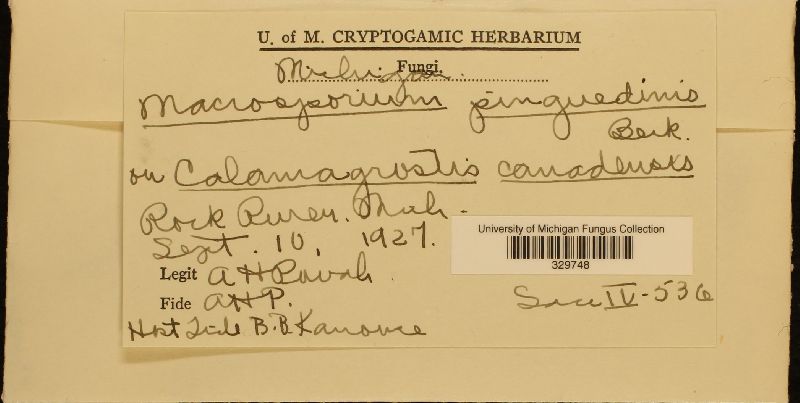 U. of M. CRYPTOGAMIC HERBARIUM
Michigan Fungi.
Macrosporium pinguedinis
Berk.
on Calamagrostis canadensis
Rock River. Mich.
Sept. 10, 1927.
University of Michigan Fungus Collection
329748
Legit A H Povah
Fide A H P.
Sacc IV-536
Host Fide B. B Kanouse